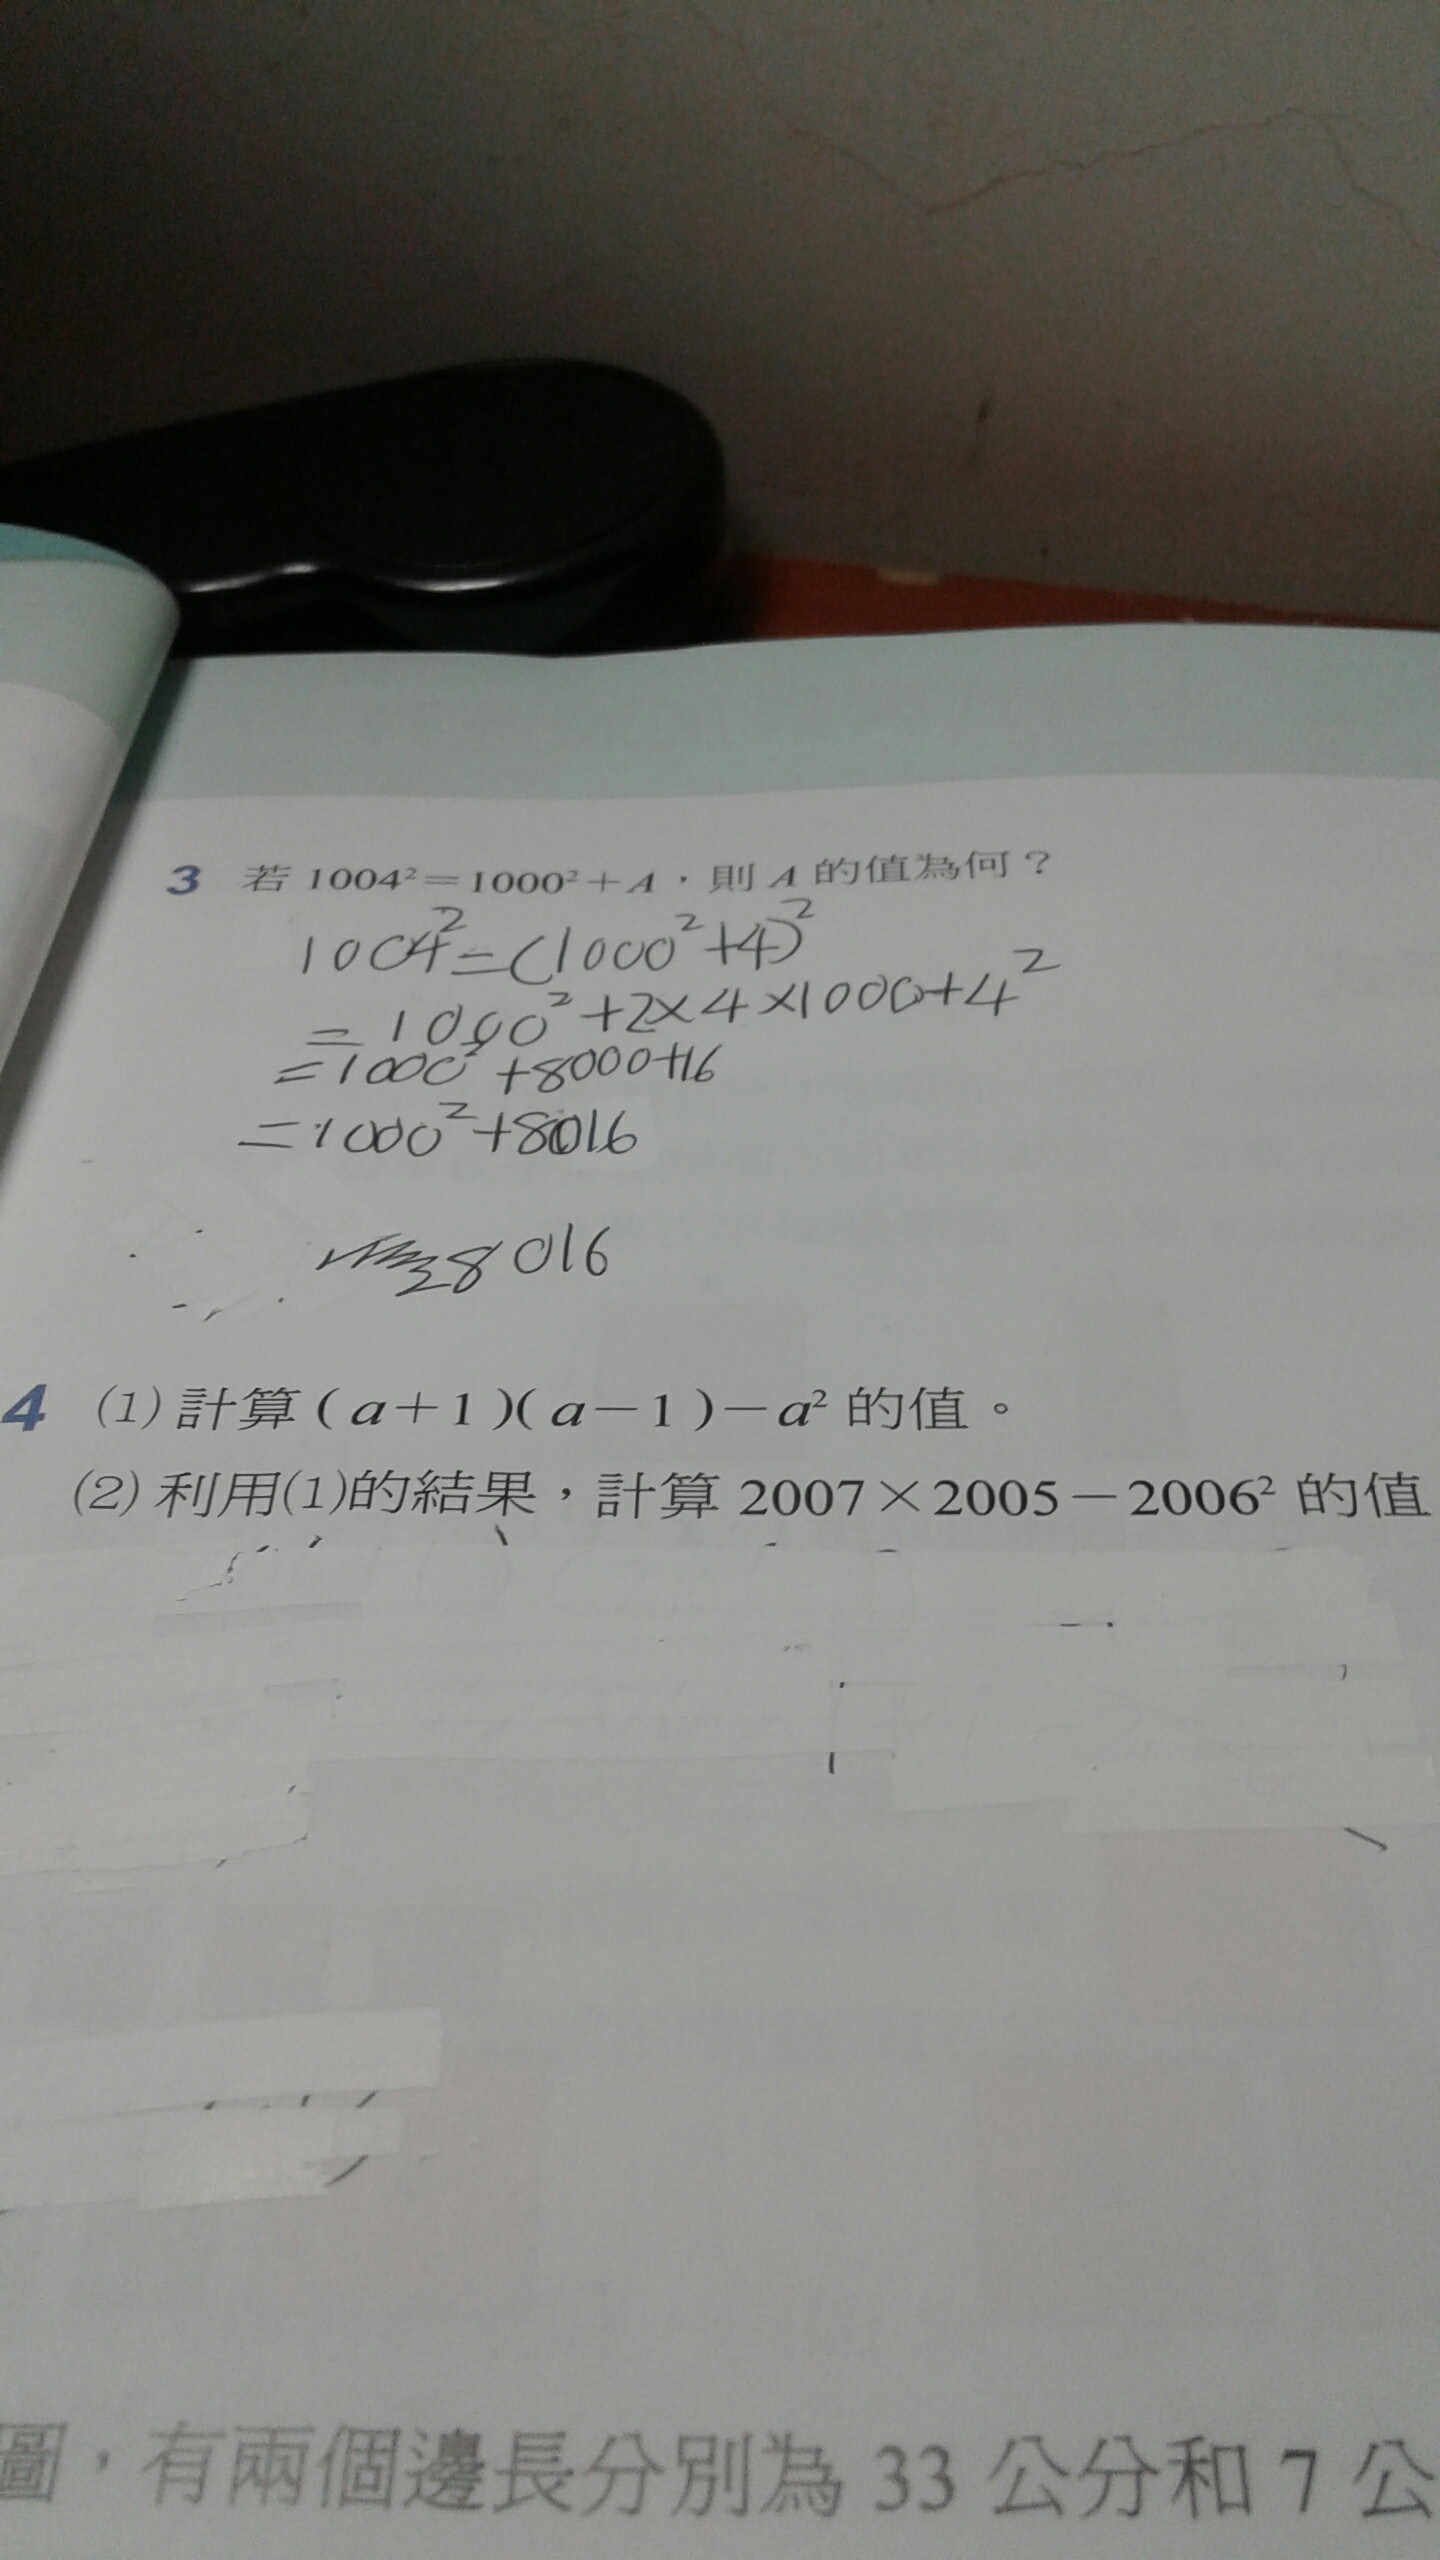 3 若 1004²=1000²+A，則 A 的值為何？
1004²=(1000²+4)²
=1000²+2×4×1000+4²
=1000²+8000+16
=1000²+8016
8016
4 (1) 計算 (a+1)(a-1)-a² 的值。
(2) 利用(1)的結果，計算 2007×2005-2006² 的值
圖，有兩個邊長分別為 33 公分和 7 公